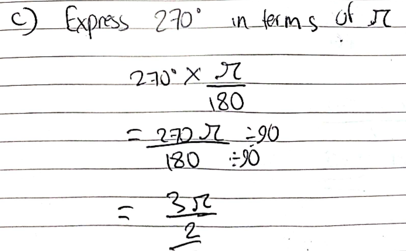 c) Express 270° in terms of π
270° × π/180
= 270π/180 ÷90 ÷90
= 3π/2